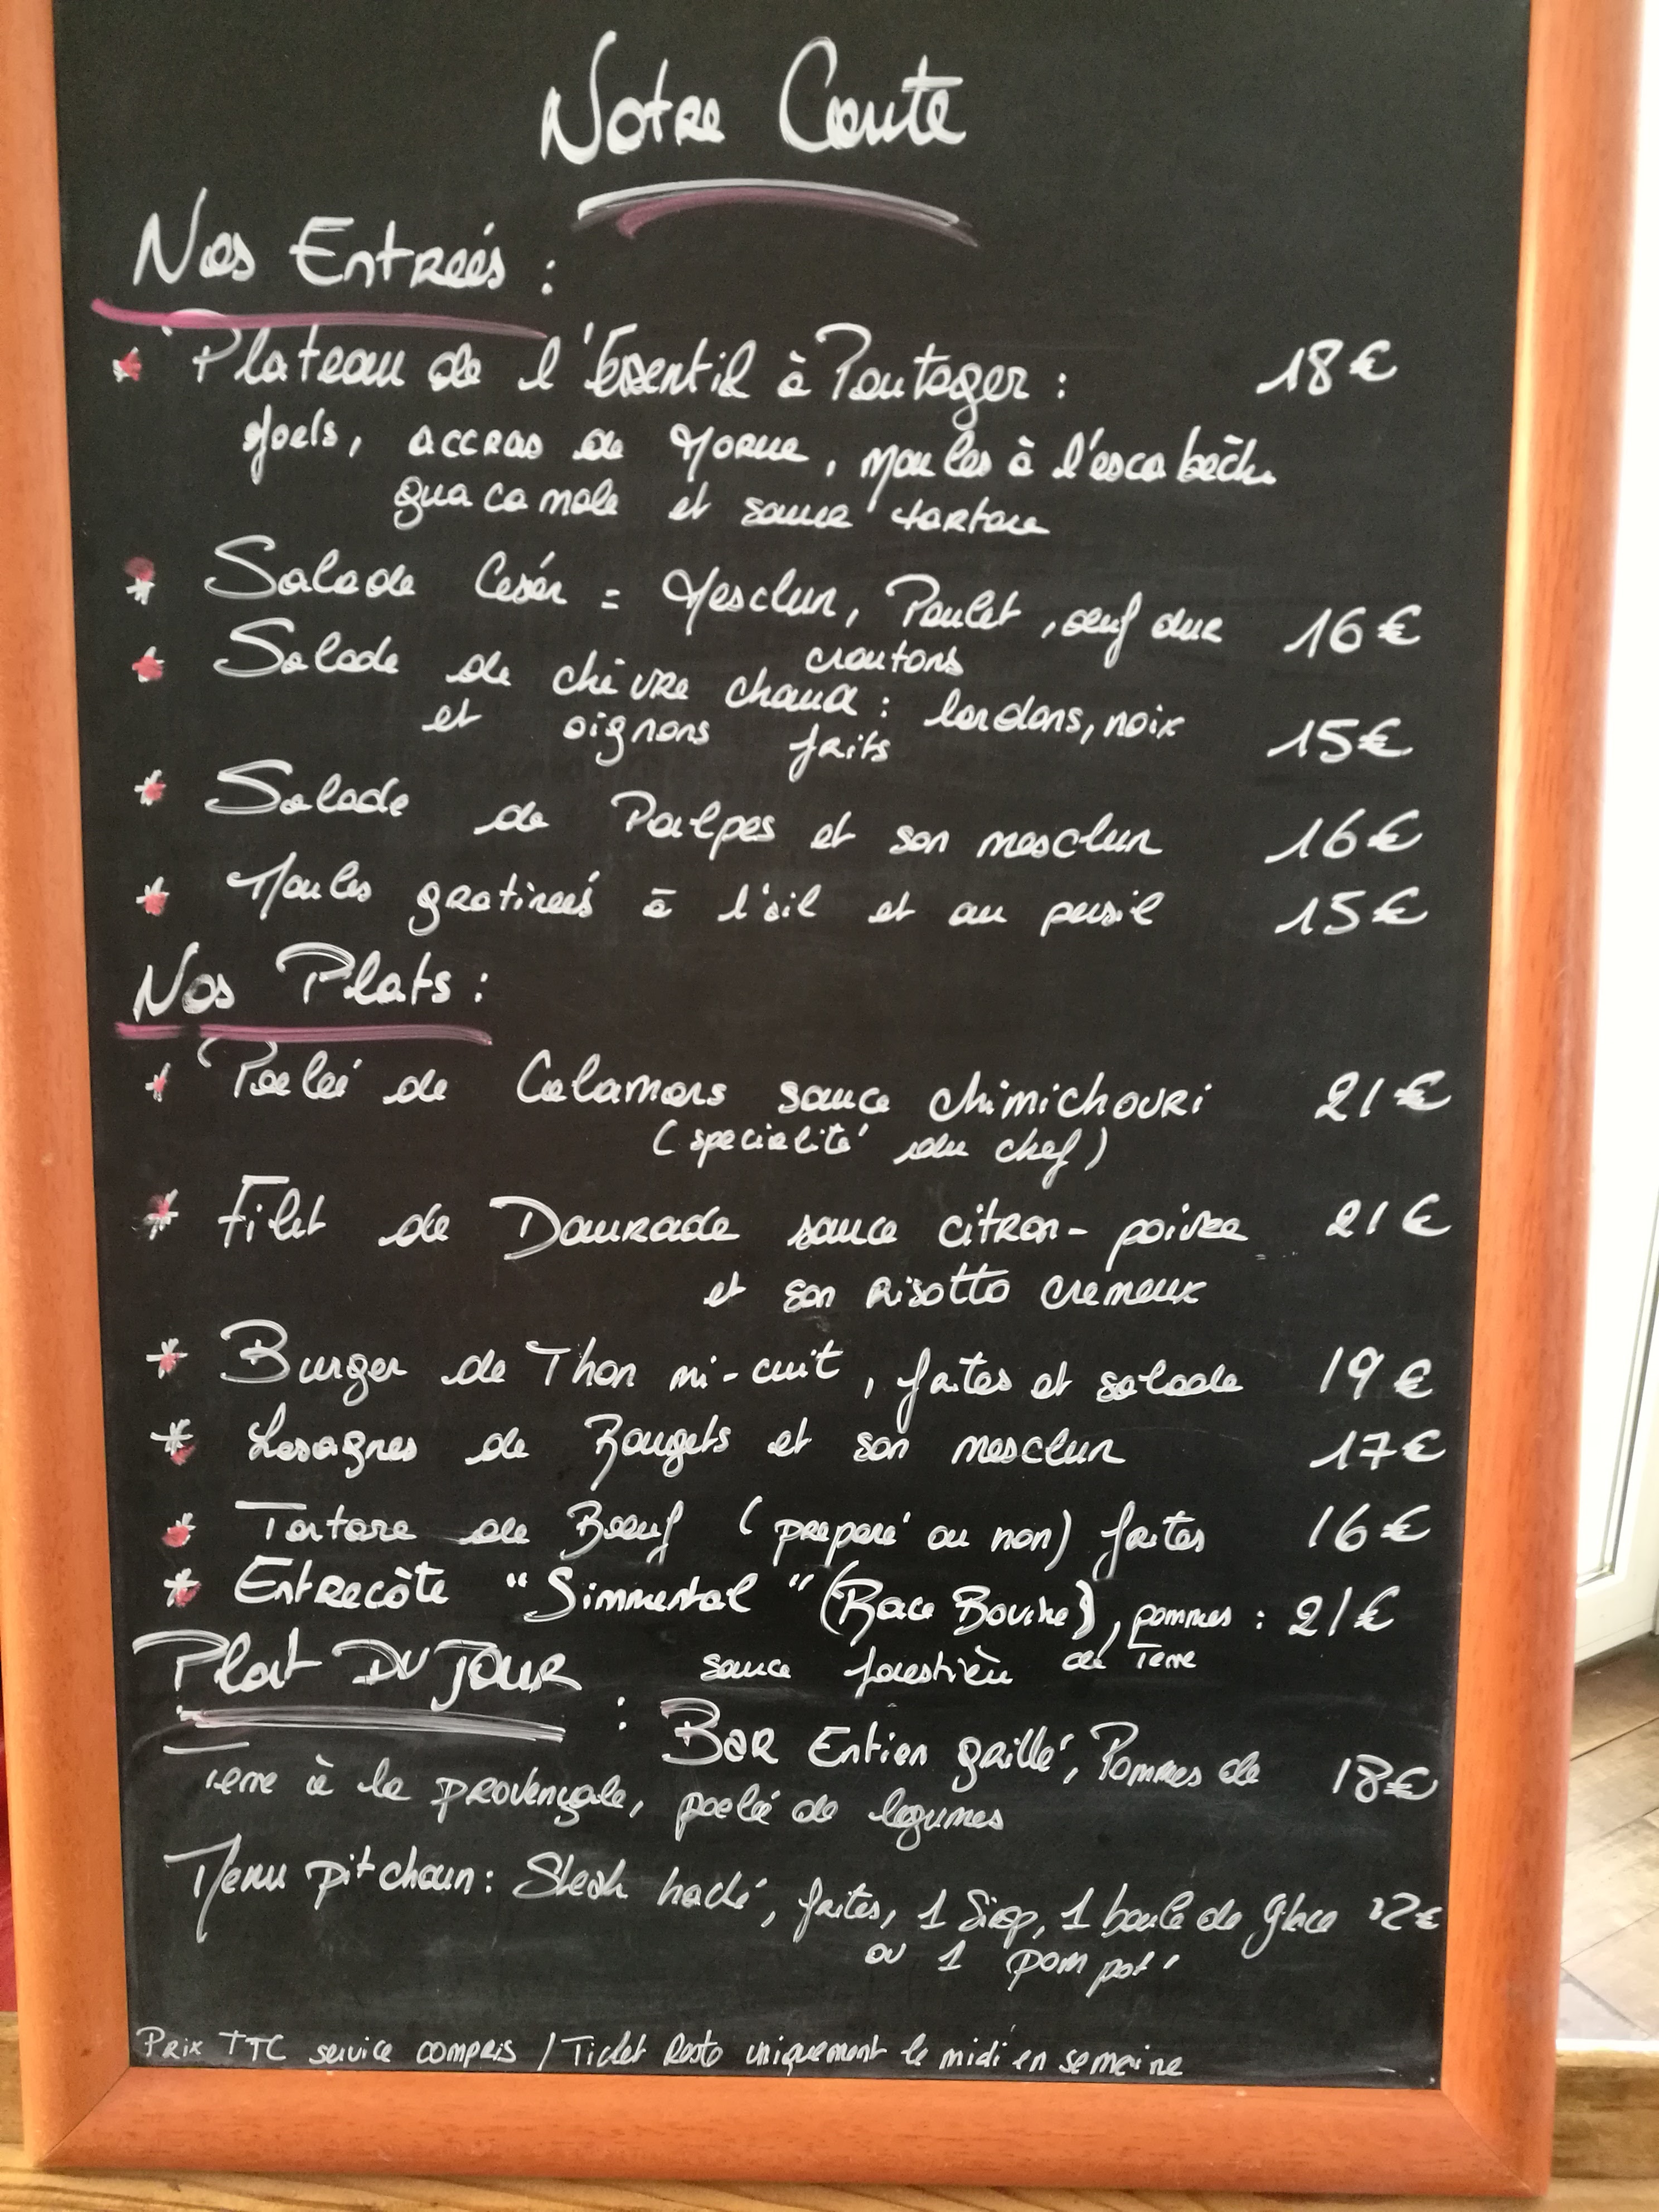 Notre Carte
Nos Entrées :
* Plateau de l'Essentiel à Partager : 18€
accras de Morue, moules à l'escabèche
guacamole et sauce tartare
* Salade César = Mesclun, Poulet, œuf dur 16€
croutons
* Salade de chèvre chaud : lardons, noix
et oignons frits 15€
* Salade de Poulpes et son mesclun 16€
* Moules gratineés à l'ail et au persil 15€
Nos Plats :
* Poeleé de Calamars sauce chimichouri 21€
(specialité du chef)
* Filet de Daurade sauce citron-poivre 21€
et son risotto cremeux
* Burger de Thon mi-cuit, frites et salade 19€
* Lasagnes de Rougets et son mesclun 17€
* Tartare de Boeuf (preparé ou non) frites 16€
* Entrecôte "Simmental" (Race Bovine), pommes : 21€
sauce forestière de Terre
Plat DU JOUR : Bar Entier grillé, Pommes de 18€
Terre à la provençale, poeleé de legumes
Menu pitchoun : Steak haché, frites, 1 Sirop, 1 boule de glace
ou 1 pom pot'
Prix TTC service compris / Ticket Resto uniquement le midi en semaine